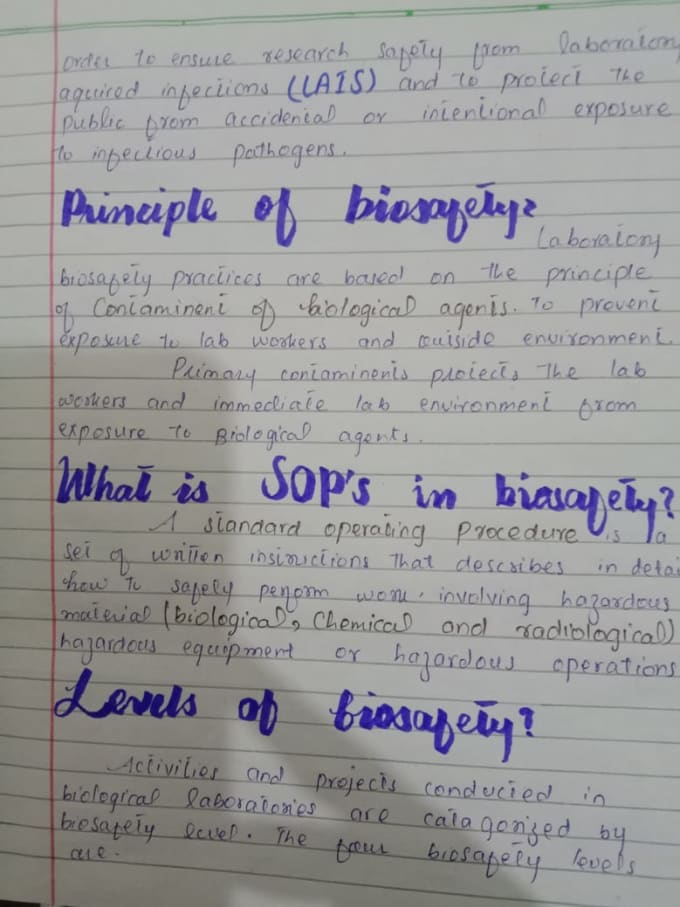 order to ensure research safety from laboratory
aquired infections (LAIS) and to protect the
public from accidental or intentional exposure
to infectious pathogens.
Principle of biosafety?
Laboratory
biosafety practices are based on the principle
of Containment of biological agents. to prevent
exposure to lab workers and outside environment.
Primary containments protects the lab
workers and immediate lab environment from
exposure to Biological agents.
What is SOP's in biosafety?
A standard operating procedure is a
set of written instructions that describes in detai
how to safely perform work involving hazardous
material (biological, Chemical and radiological)
hazardous equipment or hazardous operations
Levels of biosafety?
Activities and projects conducted in
biological laboratories are catagorized by
biosafety level. The four biosafety levels
are.